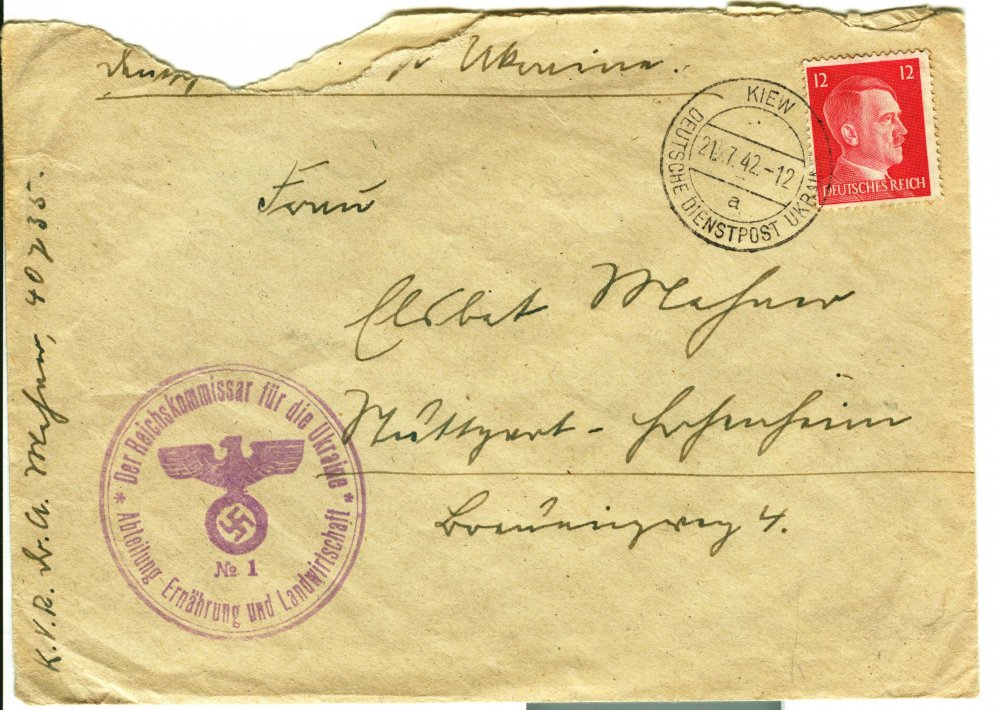 Ukraine.
12 12
DEUTSCHES REICH
KIEW
21.7.42.-12
a
DEUTSCHE DIENSTPOST UKRAINE
Frau
Elsbet
Stuttgart - Hohenheim
4.
Der Reichskommissar für die Ukraine
№ 1
* Abteilung Ernährung und Landwirtschaft *
K.V.R. Dr. A. 40735.